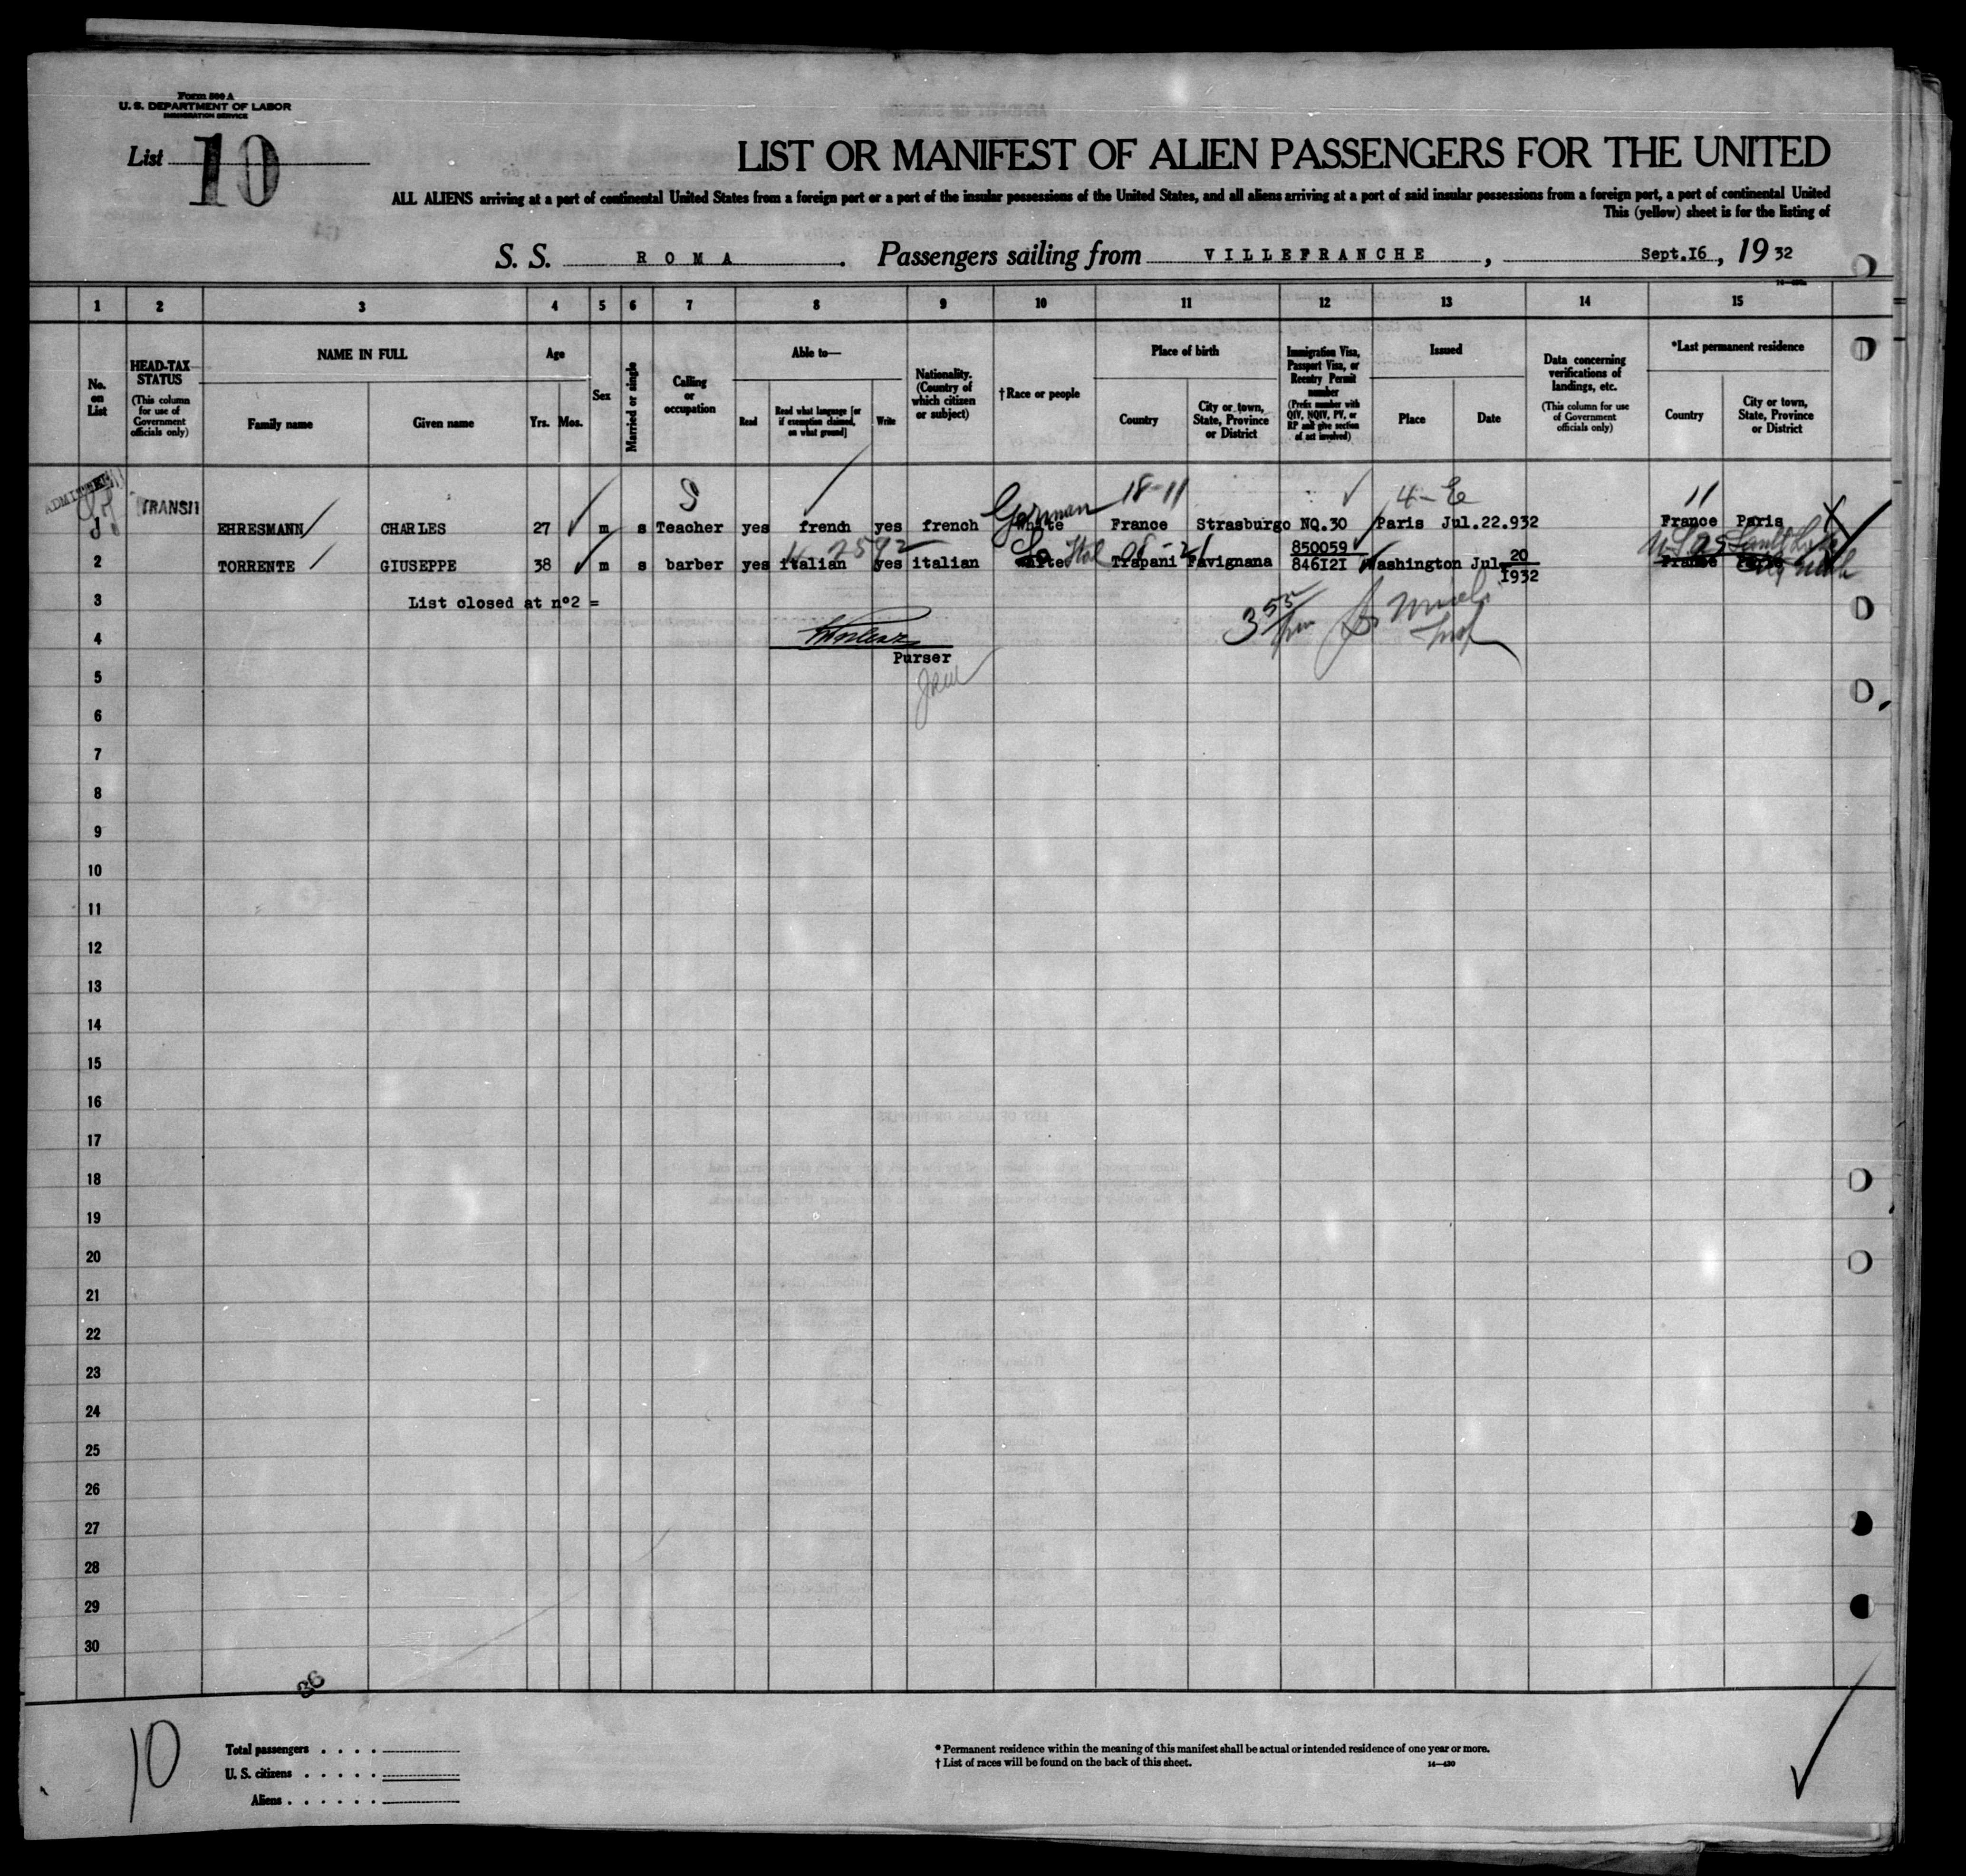 Form 500 A
U. S. DEPARTMENT OF LABOR
IMMIGRATION SERVICE
List 10
LIST OR MANIFEST OF ALIEN PASSENGERS FOR THE UNITED
ALL ALIENS arriving at a port of continental United States from a foreign port or a port of the insular possessions of the United States, and all aliens arriving at a port of said insular possessions from a foreign port, a port of continental United
This (yellow) sheet is for the listing of
S. S. ROMA. Passengers sailing from VILLEFRANCHE, Sept.I6, 19 32
1 2 3 4 5 6 7 8 9 10 11 12 13 14 15
No. on List
HEAD-TAX STATUS
(This column for use of Government officials only)
NAME IN FULL
Family name
Given name
Age
Yrs. Mos.
Sex
Married or single
Calling or occupation
Able to—
Read
Read what language [or if exemption claimed, on what ground]
Write
Nationality. (Country of which citizen or subject)
†Race or people
Place of birth
Country
City or town, State, Province or District
Immigration Visa, Passport Visa, or Reentry Permit number
(Prefix number with QIV, NQIV, PV, or RP and give section of act involved)
Issued
Place
Date
Data concerning verifications of landings, etc.
(This column for use of Government officials only)
*Last permanent residence
Country
City or town, State, Province or District
ADMITTED
TRANSIT
German 18-11 4-E 11
1 EHRESMANN CHARLES 27 m s Teacher yes french yes french White France Strasburgo NQ.30 Paris Jul.22.932 France Paris
850059
2 TORRENTE GIUSEPPE 38 m s barber yes italian yes italian So Ital Trapani Favignana 846I2I Washington Jul 20 I932 France
3 List closed at nº2 =
3 55 pm
4
Purser
5
6
7
8
9
10
11
12
13
14
15
16
17
18
19
20
21
22
23
24
25
26
27
28
29
30
10
Total passengers . . . .
U. S. citizens . . . . .
Aliens . . . . . .
* Permanent residence within the meaning of this manifest shall be actual or intended residence of one year or more.
† List of races will be found on the back of this sheet.
14—430